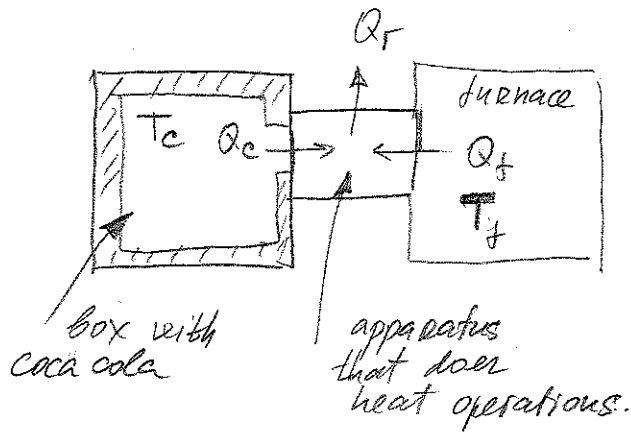 Qr
furnace
Tc Qc Qf
Tf
box with
coca cola
apparatus
that does
heat operations.